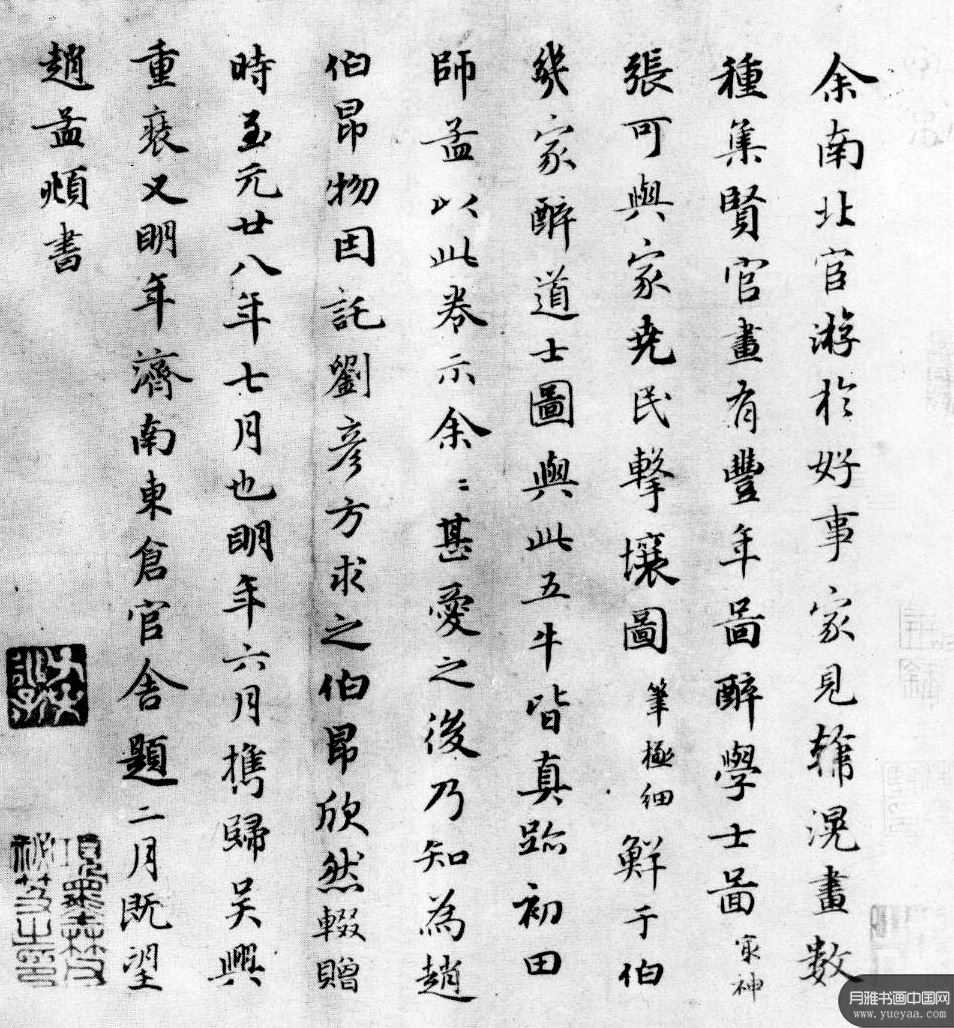 余南北官游於好事家見韓滉畫數
種集賢官畫有豐年啚醉學士啚寂神
張可與家堯民擊壤圖筆極細鮮于伯
幾家醉道士圖與此五牛皆真跡初田
師孟以此卷示余〻甚愛之後乃知為趙
伯昂物因託劉彥方求之伯昂欣然輟贈
時至元廿八年七月也明年六月攜歸吴興
重裝又明年濟南東倉官舍題二月既望
趙孟頫書
項墨林父
秘笈之印
月雅书画中国网
www.yueyaa.com